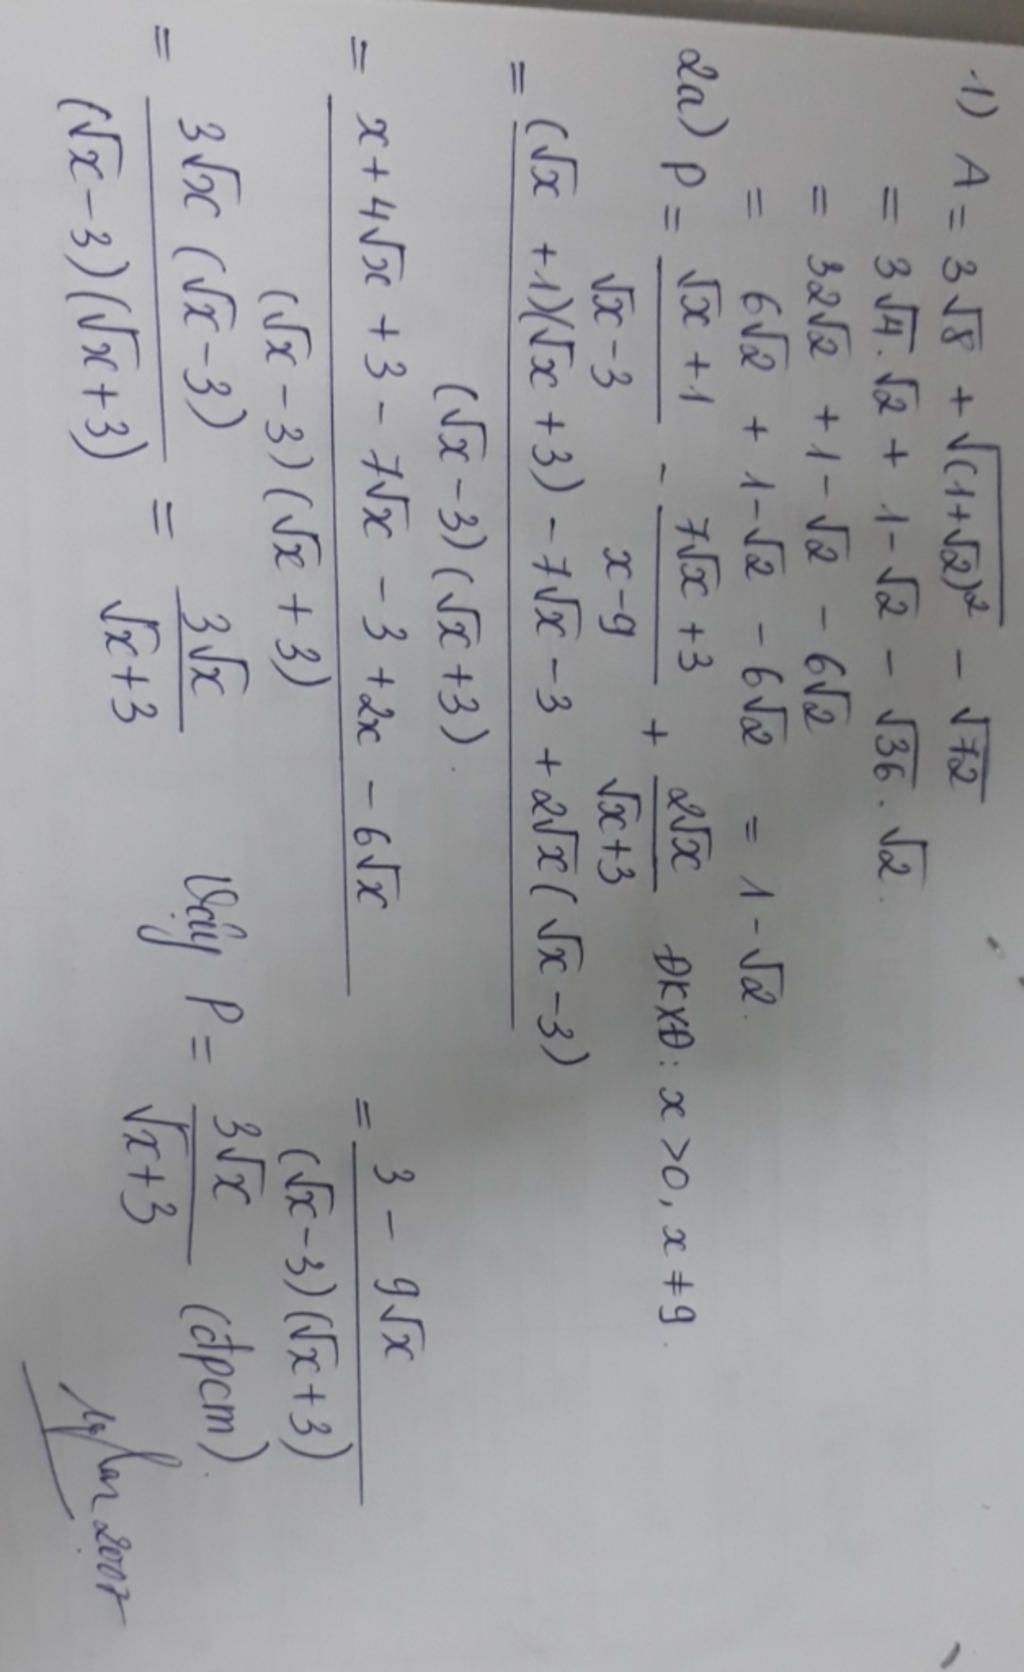 1) A = 3√8 + √(1+√2)² − √72
= 3√4.√2 + 1−√2 − √36.√2.
= 32√2 + 1−√2 − 6√2
= 6√2 + 1−√2 − 6√2 = 1−√2.
2a) P = (√x+1)/(√x−3) − (7√x+3)/(x−9) + 2√x/(√x+3) ĐKXĐ: x>0, x≠9.
= ((√x+1)(√x+3) − 7√x − 3 + 2√x(√x−3))/((√x−3)(√x+3)).
= (x+4√x+3−7√x−3+2x−6√x)/((√x−3)(√x+3)) = (3−9√x)/((√x−3)(√x+3))
= 3√x(√x−3)/((√x−3)(√x+3)) = 3√x/(√x+3) Vậy P = 3√x/(√x+3) (đpcm).
2007